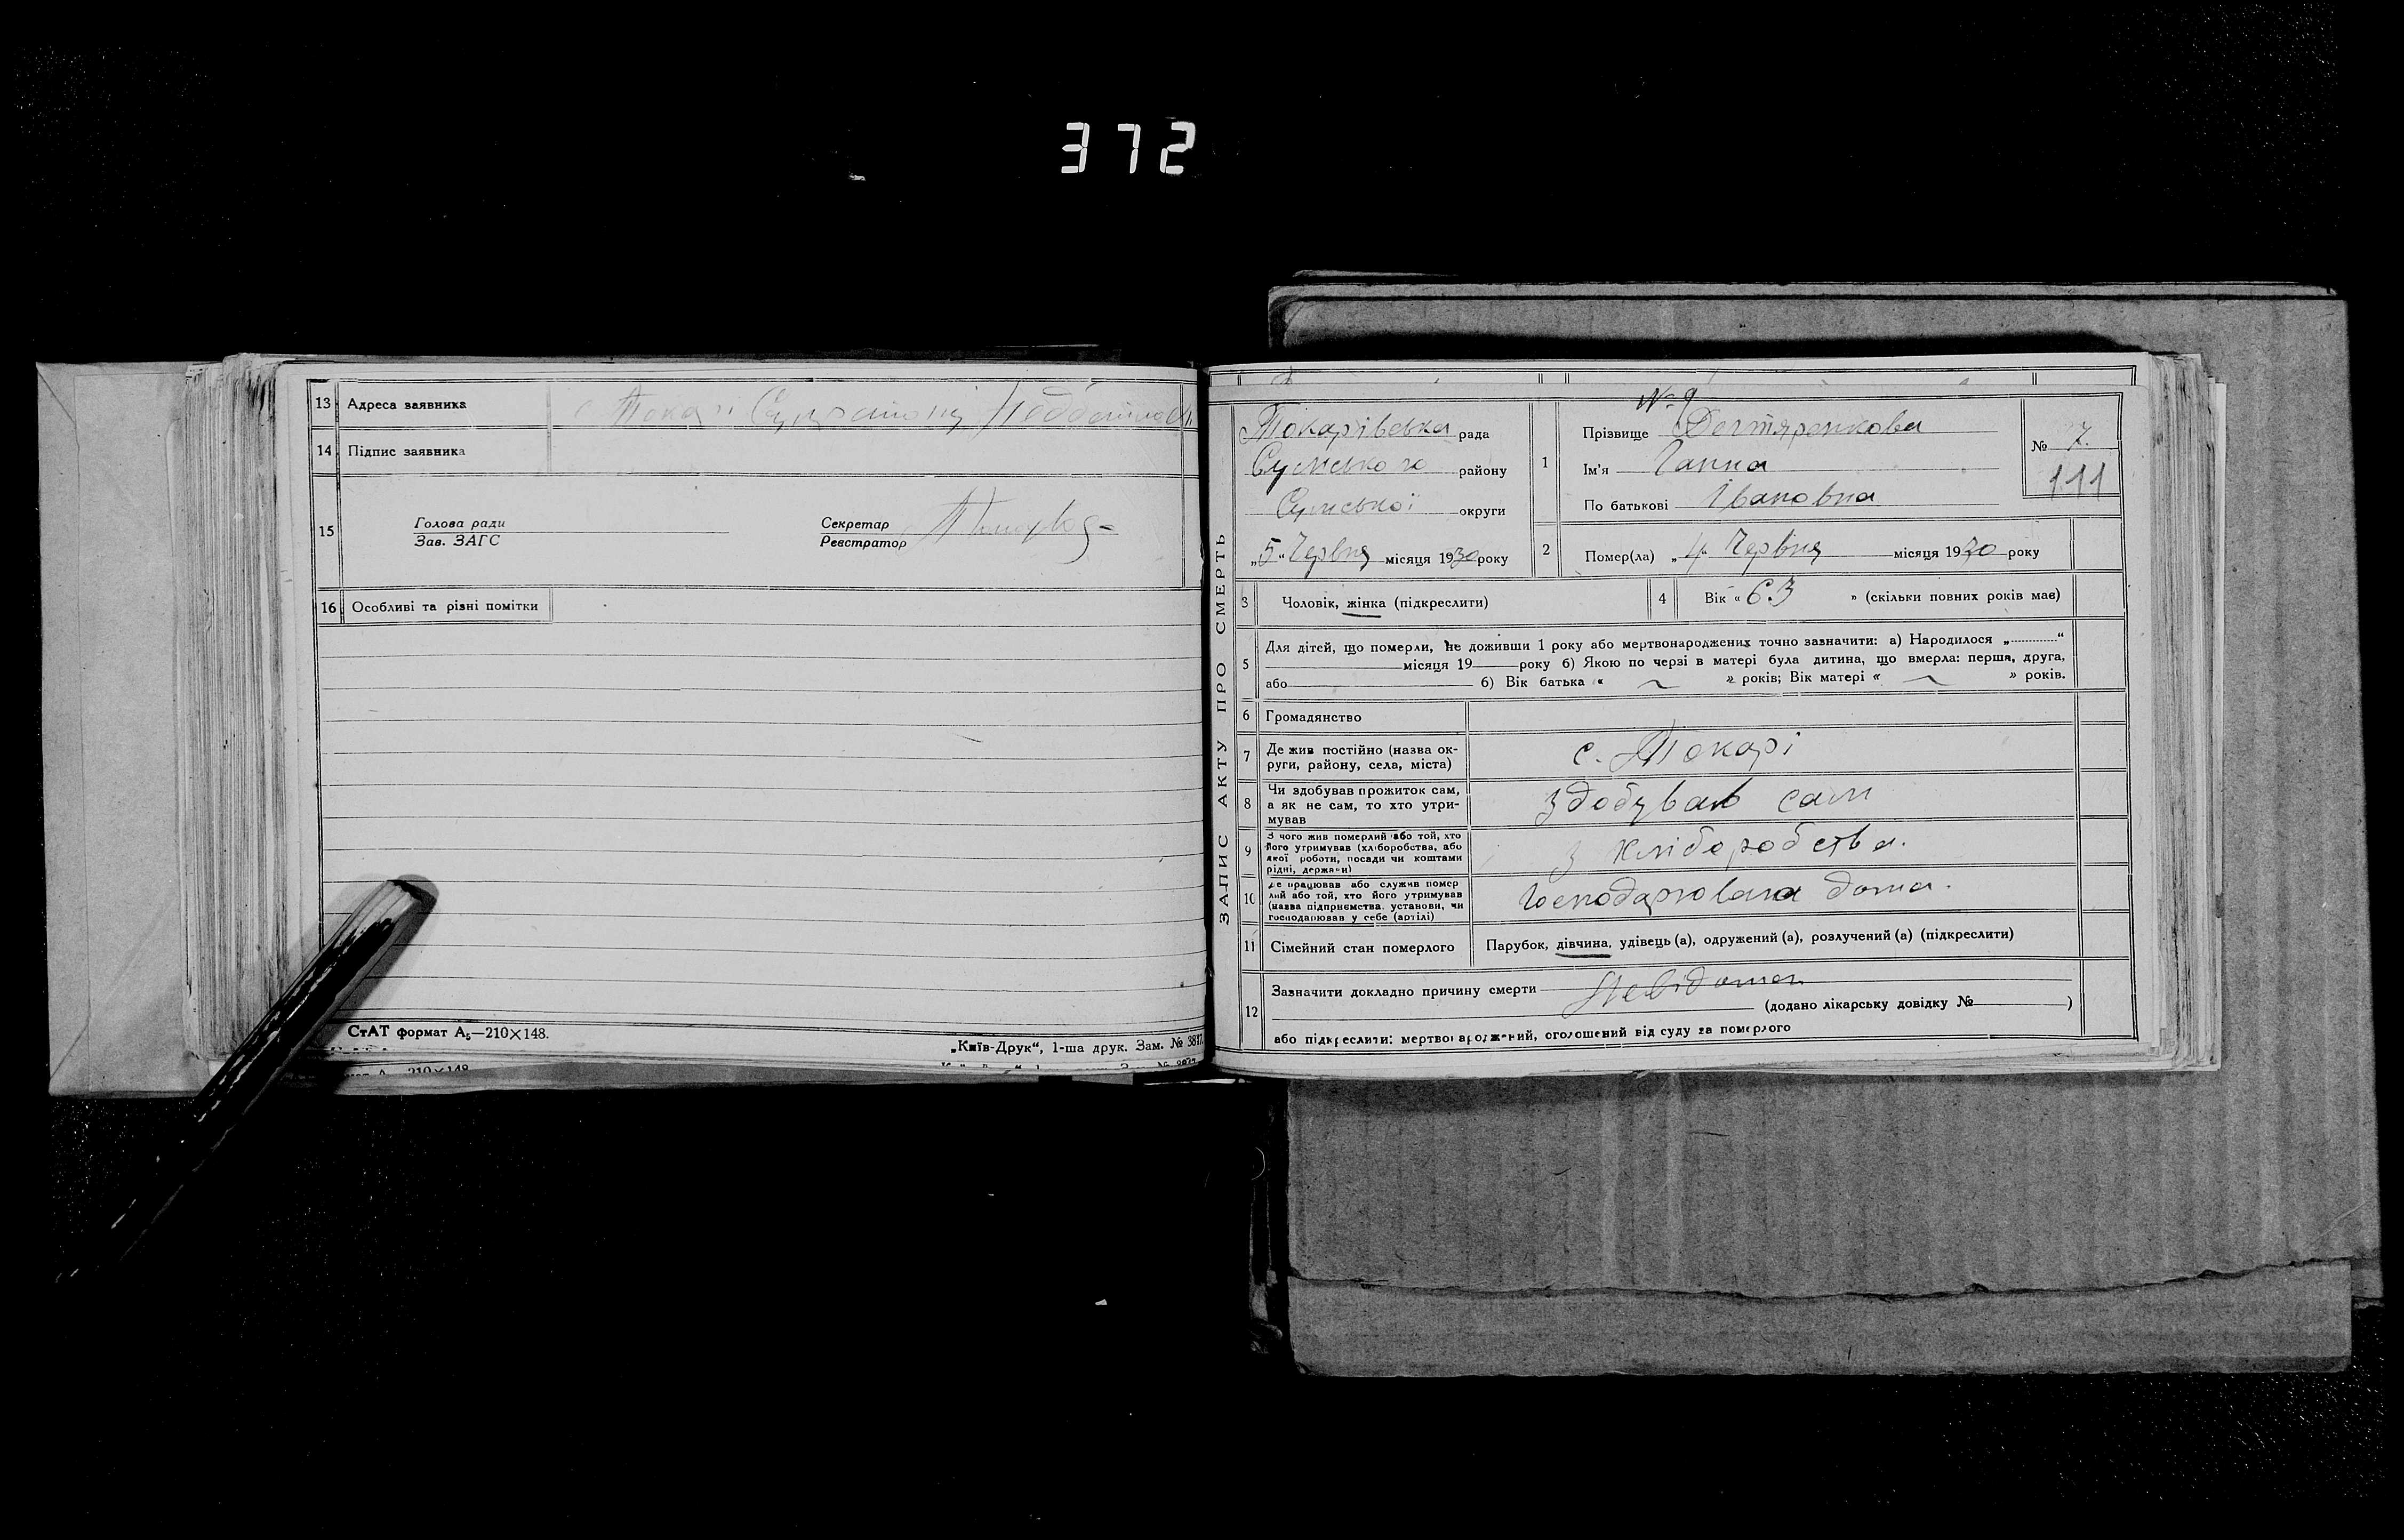 372
13 Адреса заявника Токарі
14 Підпис заявника
15 Голова ради
Зав. ЗАГС
Секретар
Реєстратор
16 Особливі та різні помітки
СтАТ формат А₅—210×148.
„Київ-Друк“, 1-ша друк. Зам. № 3817.
ЗАПИС АКТУ ПРО СМЕРТЬ
Токарівська рада
Сумського району
Сумської округи
„5“ Червня місяця 1930 року
№ 9
1 Прізвище Дегтяренкова
Ім'я Ганна
По батькові Івановна
№ 7.
111
2 Помер(ла) „4“ Червня місяця 1930 року
3 Чоловік, жінка (підкреслити)
4 Вік « 63 » (скільки повних років має)
5 Для дітей, що померли, не доживши 1 року або мертвонароджених точно зазначити: а) Народилося „............“
місяця 19 року б) Якою по черзі в матері була дитина, що вмерла: перша, друга,
або б) Вік батька « ~ » років; Вік матері « ~ » років.
6 Громадянство
7 Де жив постійно (назва ок-
руги, району, села, міста) с. Токарі
8 Чи здобував прожиток сам,
а як не сам, то хто утри-
мував здобував сам
9 З чого жив померлий або той, хто
його утримував (хліборобства, або
якої роботи, посади чи коштами
рідні, держави) з хліборобства.
10 Де працював або служив помер
лий або той, хто його утримував
(назва підприємства, установи, чи
господарював у себе (артілі) Господарювала дома.
11 Сімейний стан померлого Парубок, дівчина, удівець (а), одружений (а), розлучений (а) (підкреслити)
12 Зазначити докладно причину смерти Невідома
(додано лікарську довідку № )
або підкреслити: мертвонароджений, оголошений від суду за померлого